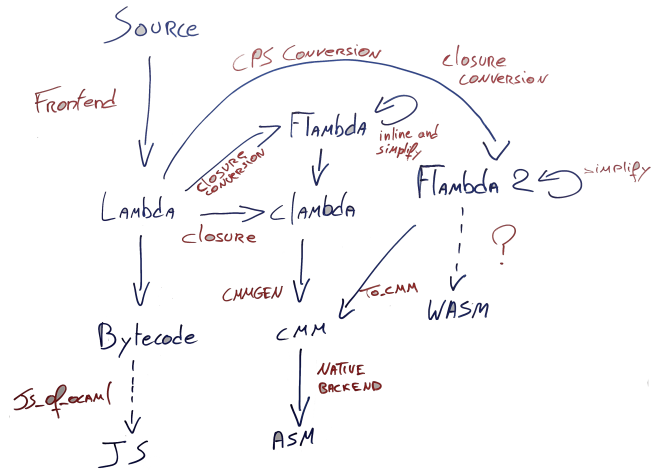 Source
CPS Conversion
closure
conversion
Frontend
Flambda
inline and
simplify
closure
conversion
Flambda 2
simplify
Lambda
closure
clambda
?
CMMGEN
To_CMM
WASM
Bytecode
CMM
JS_of_ocaml
NATIVE
BACKEND
JS
ASM